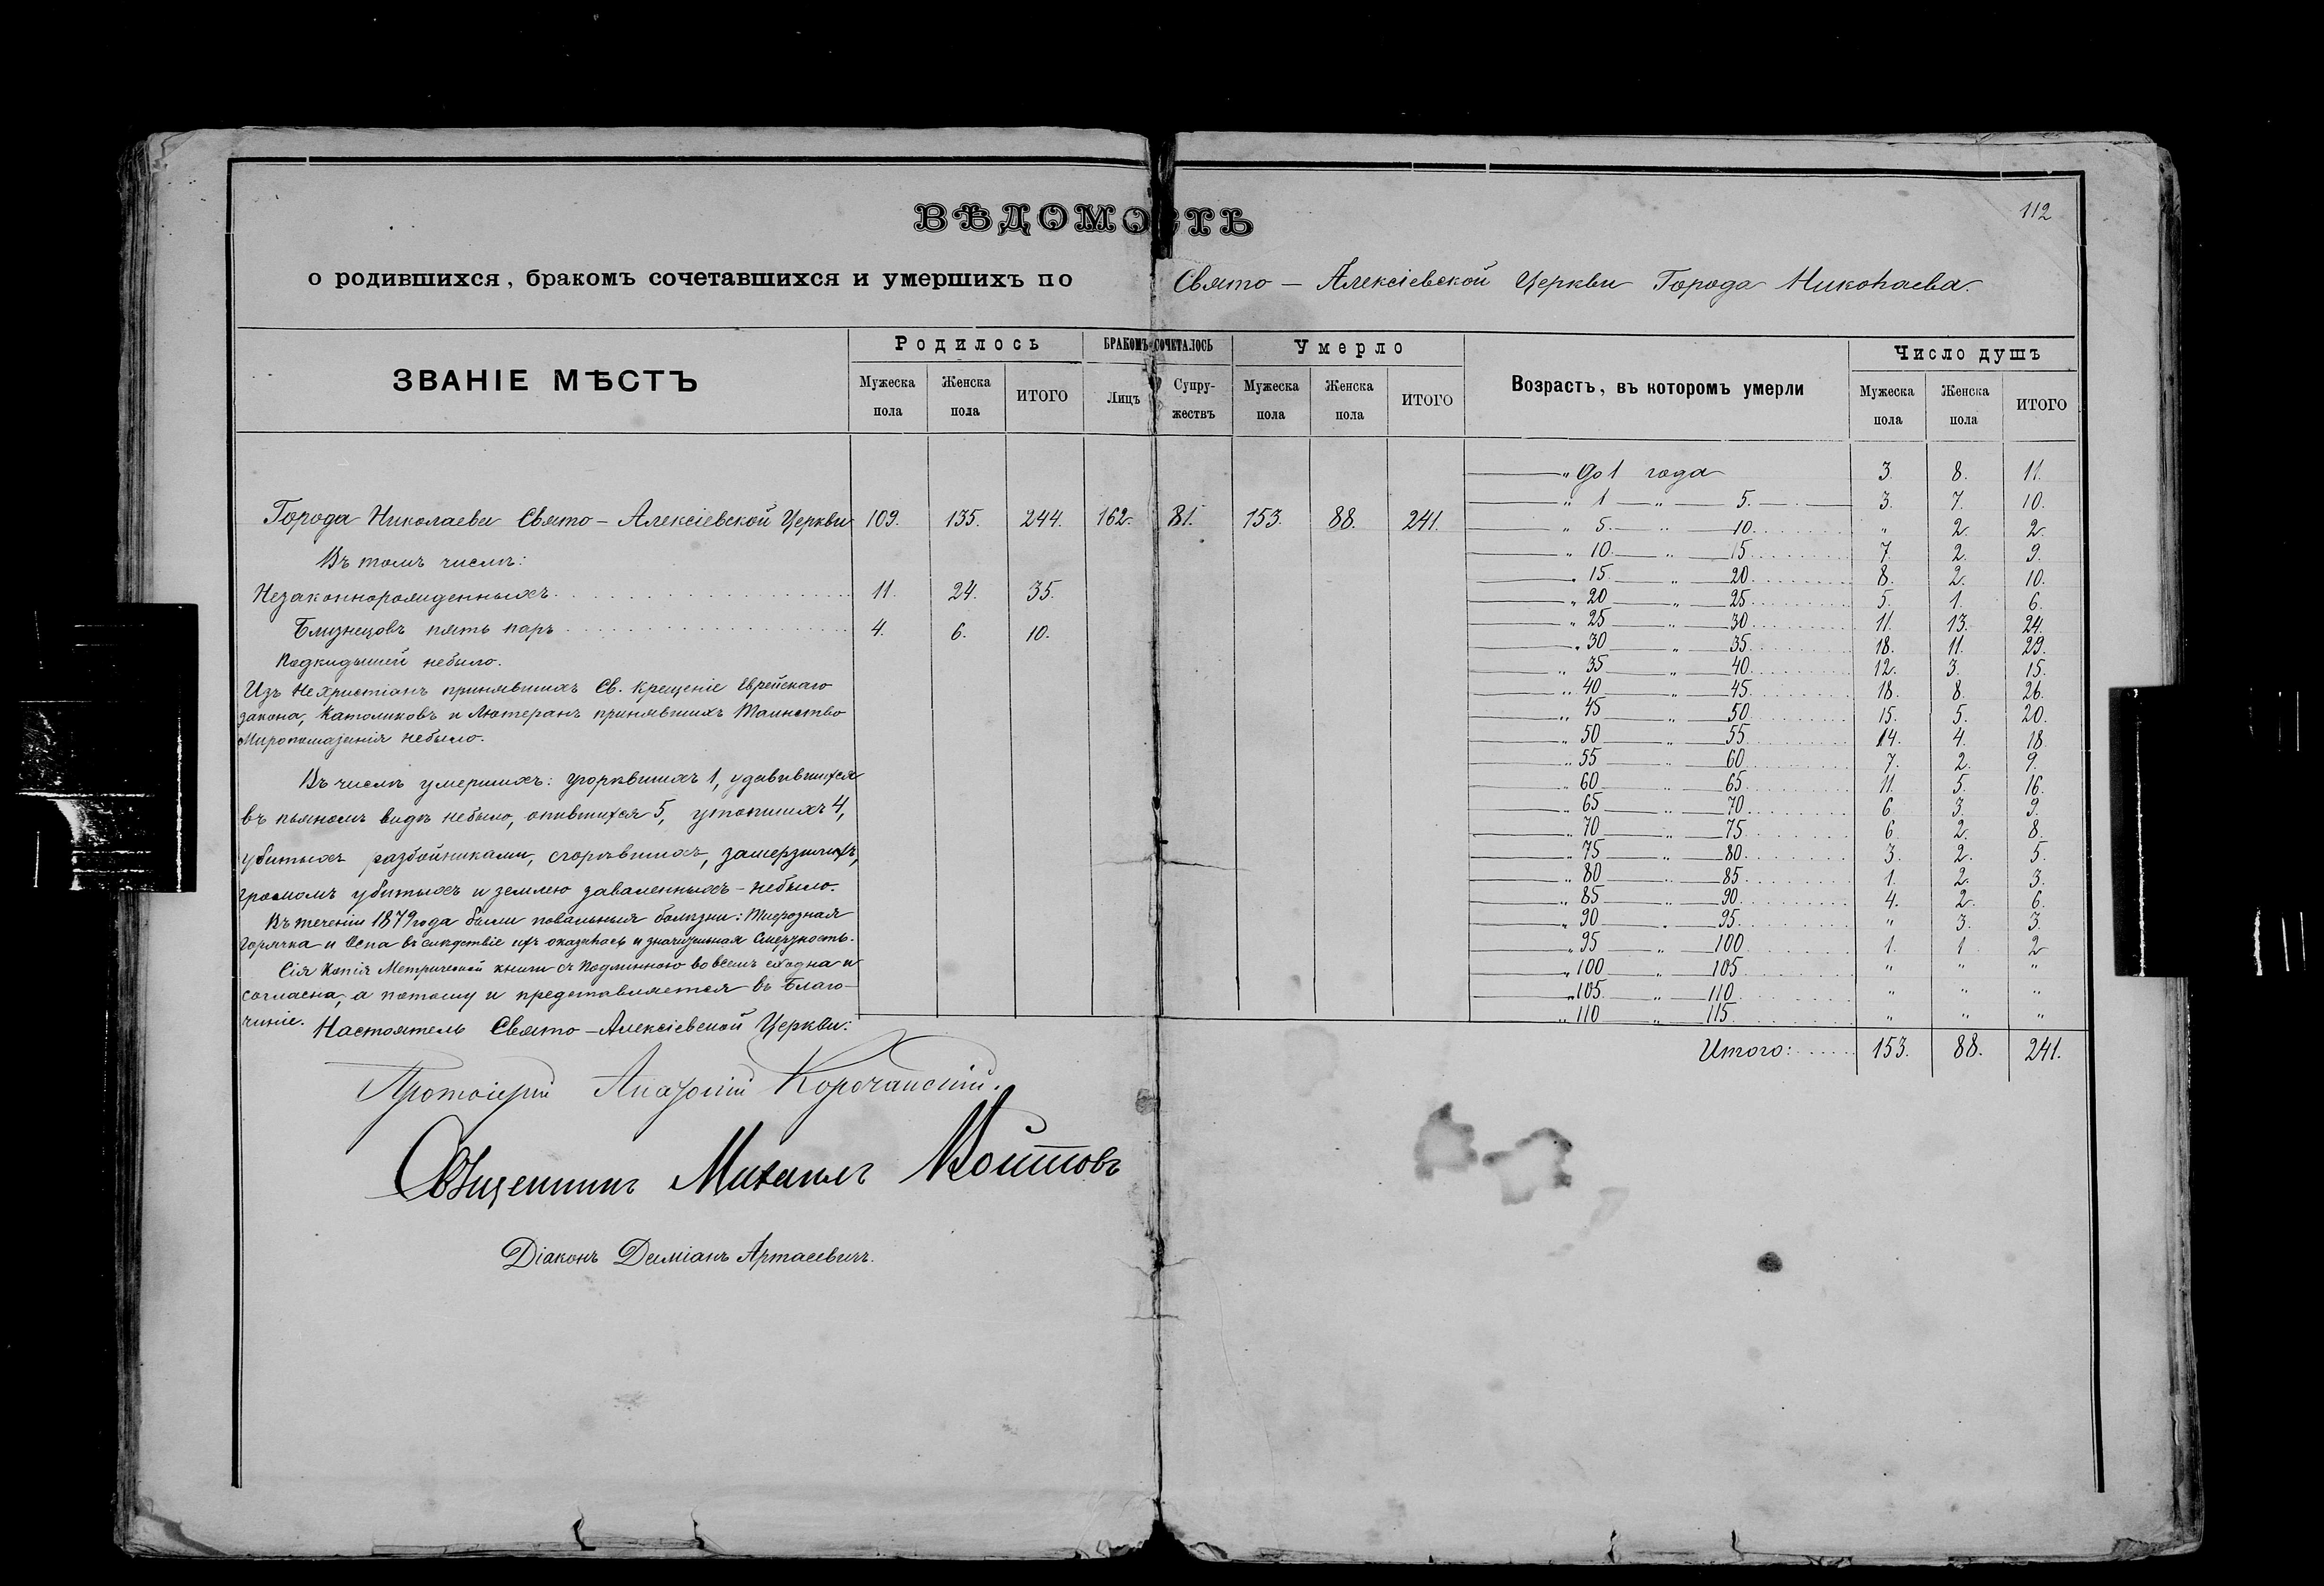 112
ВѢДОМОСТЬ
о родившихся, бракомъ сочетавшихся и умершихъ по Свято – Алексіевской Церкви Города Николаева.
ЗВАНІЕ МѢСТЪ
Родилось
Мужеска пола
Женска пола
ИТОГО
БРАКОМЪ СОЧЕТАЛОСЬ
Лицъ
Супружествъ
Умерло
Мужеска пола
Женска пола
ИТОГО
Возрастъ, въ которомъ умерли
Число душъ
Мужеска пола
Женска пола
ИТОГО
Города Николаева Свято – Алексіевской Церкви 109. 135. 244. 162. 81. 153. 88. 241.
Въ томъ числѣ:
Незаконнорожденныхъ 11. 24. 35.
Близнецовъ пять паръ 4. 6. 10.
Подкидышей небыло.
Изъ Нехристіанъ принявшихъ Св. Крещеніе Еврейскаго
закона, Католиковъ и Лютеранъ принявшихъ Таинство
Миропомазанія небыло.
Въ числѣ умершихъ: угорѣвшихъ 1, удавившихся
въ пьяномъ видѣ небыло, опившихся 5, утопшихъ 4,
убитыхъ разбойниками, сгорѣвшихъ, замерзшихъ,
громомъ убитыхъ и землею заваленныхъ – небыло.
Въ теченіи 1879 года были повальныя болѣзни: Тифозная
горячка и Оспа въ слѣдствіе ихъ оказалась и значительная Смертность.
Сія Копія Метрической книги съ Подлинною во всемъ сходна и
согласна, а потому и представляется въ Благо-
чиніе. Настоятель Свято – Алексіевской Церкви:
Протоіерей Корочанскій.
Священникъ Михаилъ Войтовъ
Діаконъ Даміанъ Артасевичъ.
" До 1 года 3. 8. 11.
" 1 — " — 5. 3. 7. 10.
" 5. " 10. " 2. 2.
" 10. " 15. 7. 2. 9.
" 15. " 20. 8. 2. 10.
" 20 " 25. 5. 1. 6.
" 25 " 30. 11. 13. 24.
" 30 " 35. 18. 11. 29.
" 35 " 40. 12. 3. 15.
" 40 " 45. 18. 8. 26.
" 45 " 50. 15. 5. 20.
" 50 " 55. 14. 4. 18.
" 55 " 60. 7. 2. 9.
" 60 " 65. 11. 5. 16.
" 65 " 70. 6. 3. 9.
" 70 " 75. 6. 2. 8.
" 75 " 80. 3. 2. 5.
" 80 " 85. 1. 2. 3.
" 85 " 90. 4. 2. 6.
" 90 " 95. " 3. 3.
" 95 " 100. 1. 1. 2
" 100 " 105 " " "
" 105 " 110 " " "
" 110 " 115 " " "
Итого: 153. 88. 241.